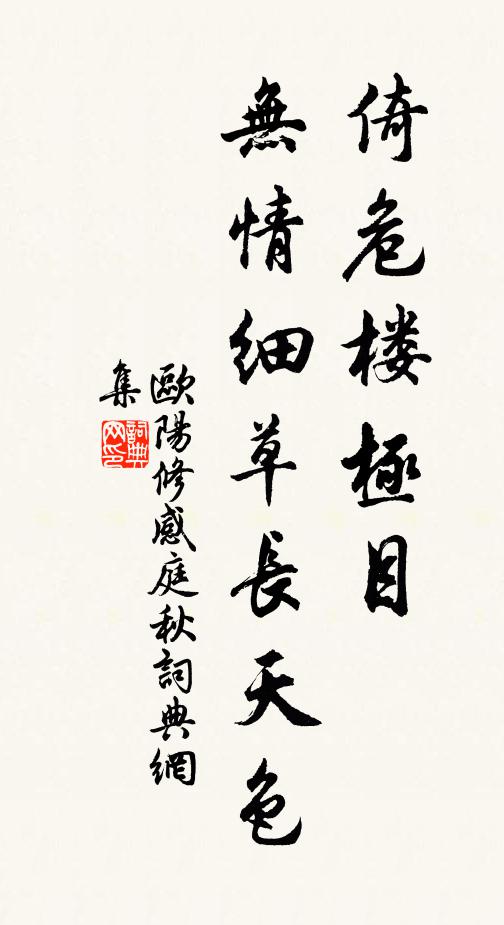 倚危楼極目
無情細草長天色
歐陽修感庭秋詞典網
集
詞典网印